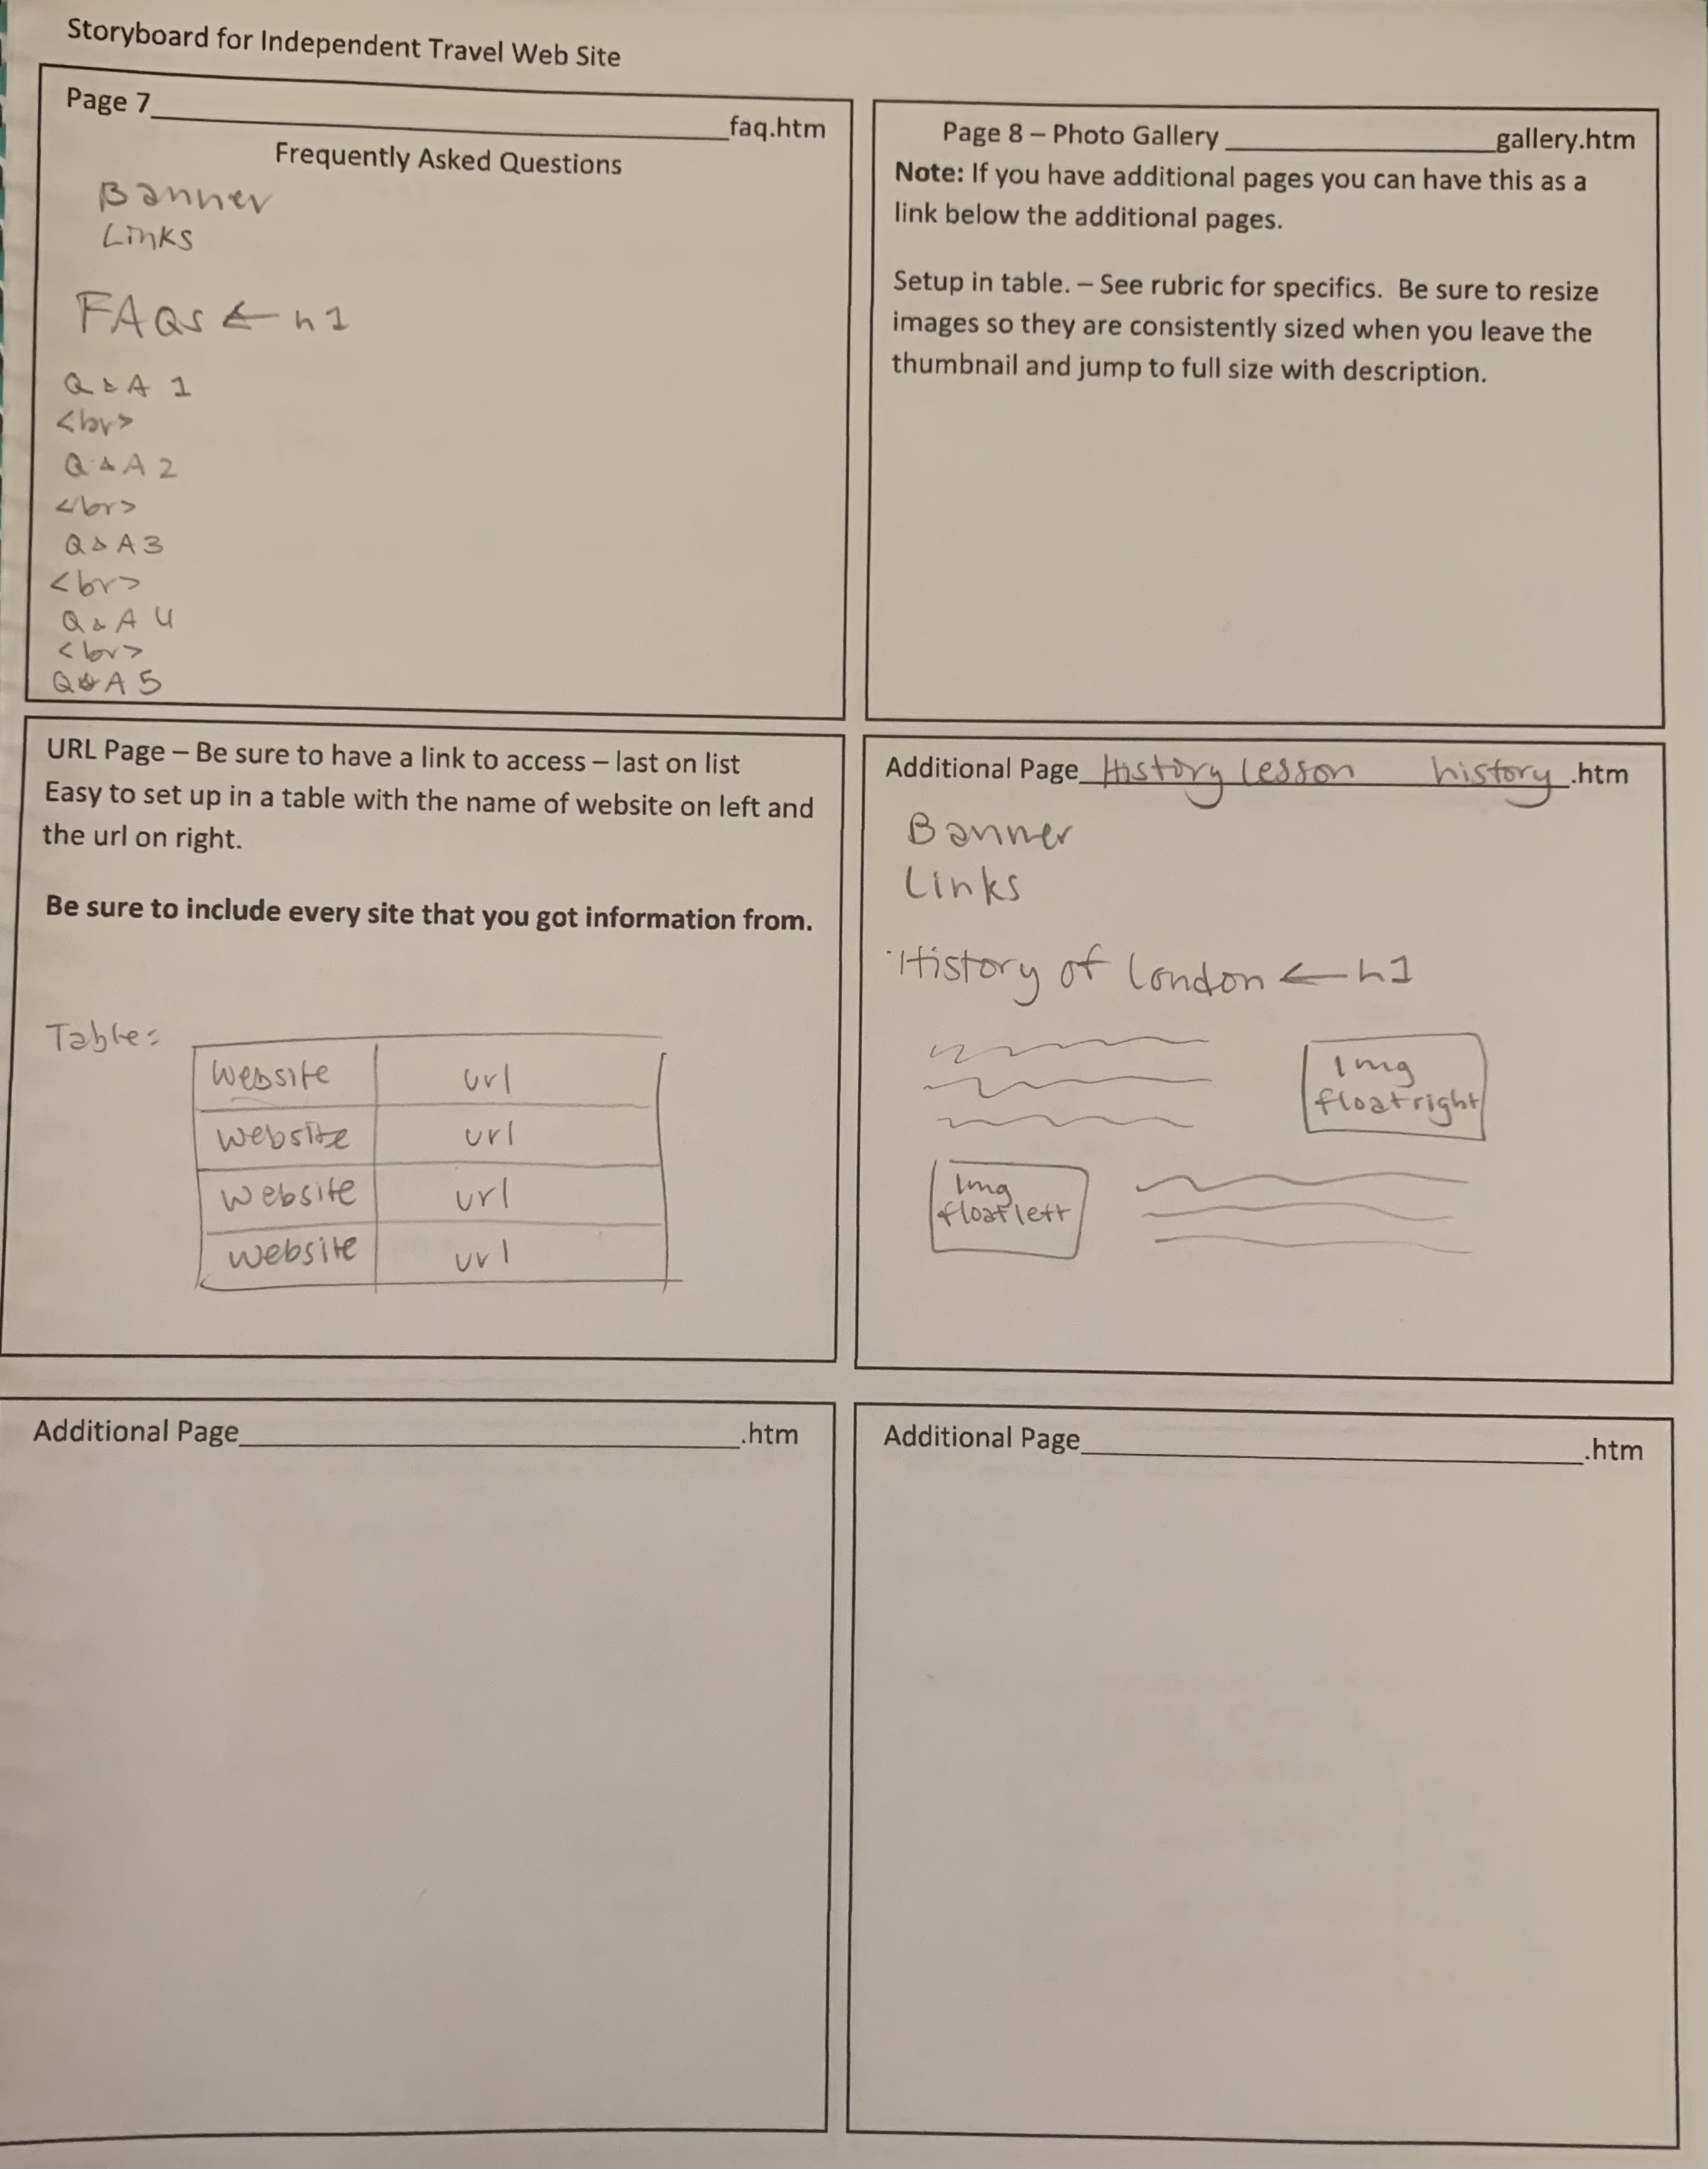 Storyboard for Independent Travel Web Site
Page 7____________________faq.htm
Frequently Asked Questions
Banner
Links
FAQs ← h1
Q & A 1
<br>
Q & A 2
</br>
Q & A 3
<br>
Q & A 4
<br>
Q & A 5
Page 8 – Photo Gallery __________gallery.htm
Note: If you have additional pages you can have this as a
link below the additional pages.
Setup in table. – See rubric for specifics. Be sure to resize
images so they are consistently sized when you leave the
thumbnail and jump to full size with description.
URL Page – Be sure to have a link to access – last on list
Easy to set up in a table with the name of website on left and
the url on right.
Be sure to include every site that you got information from.
Table:
website url
website url
website url
website url
Additional Page History lesson history.htm
Banner
Links
History of London ← h1
Img
float right
Img
float left
Additional Page____________________.htm
Additional Page____________________.htm